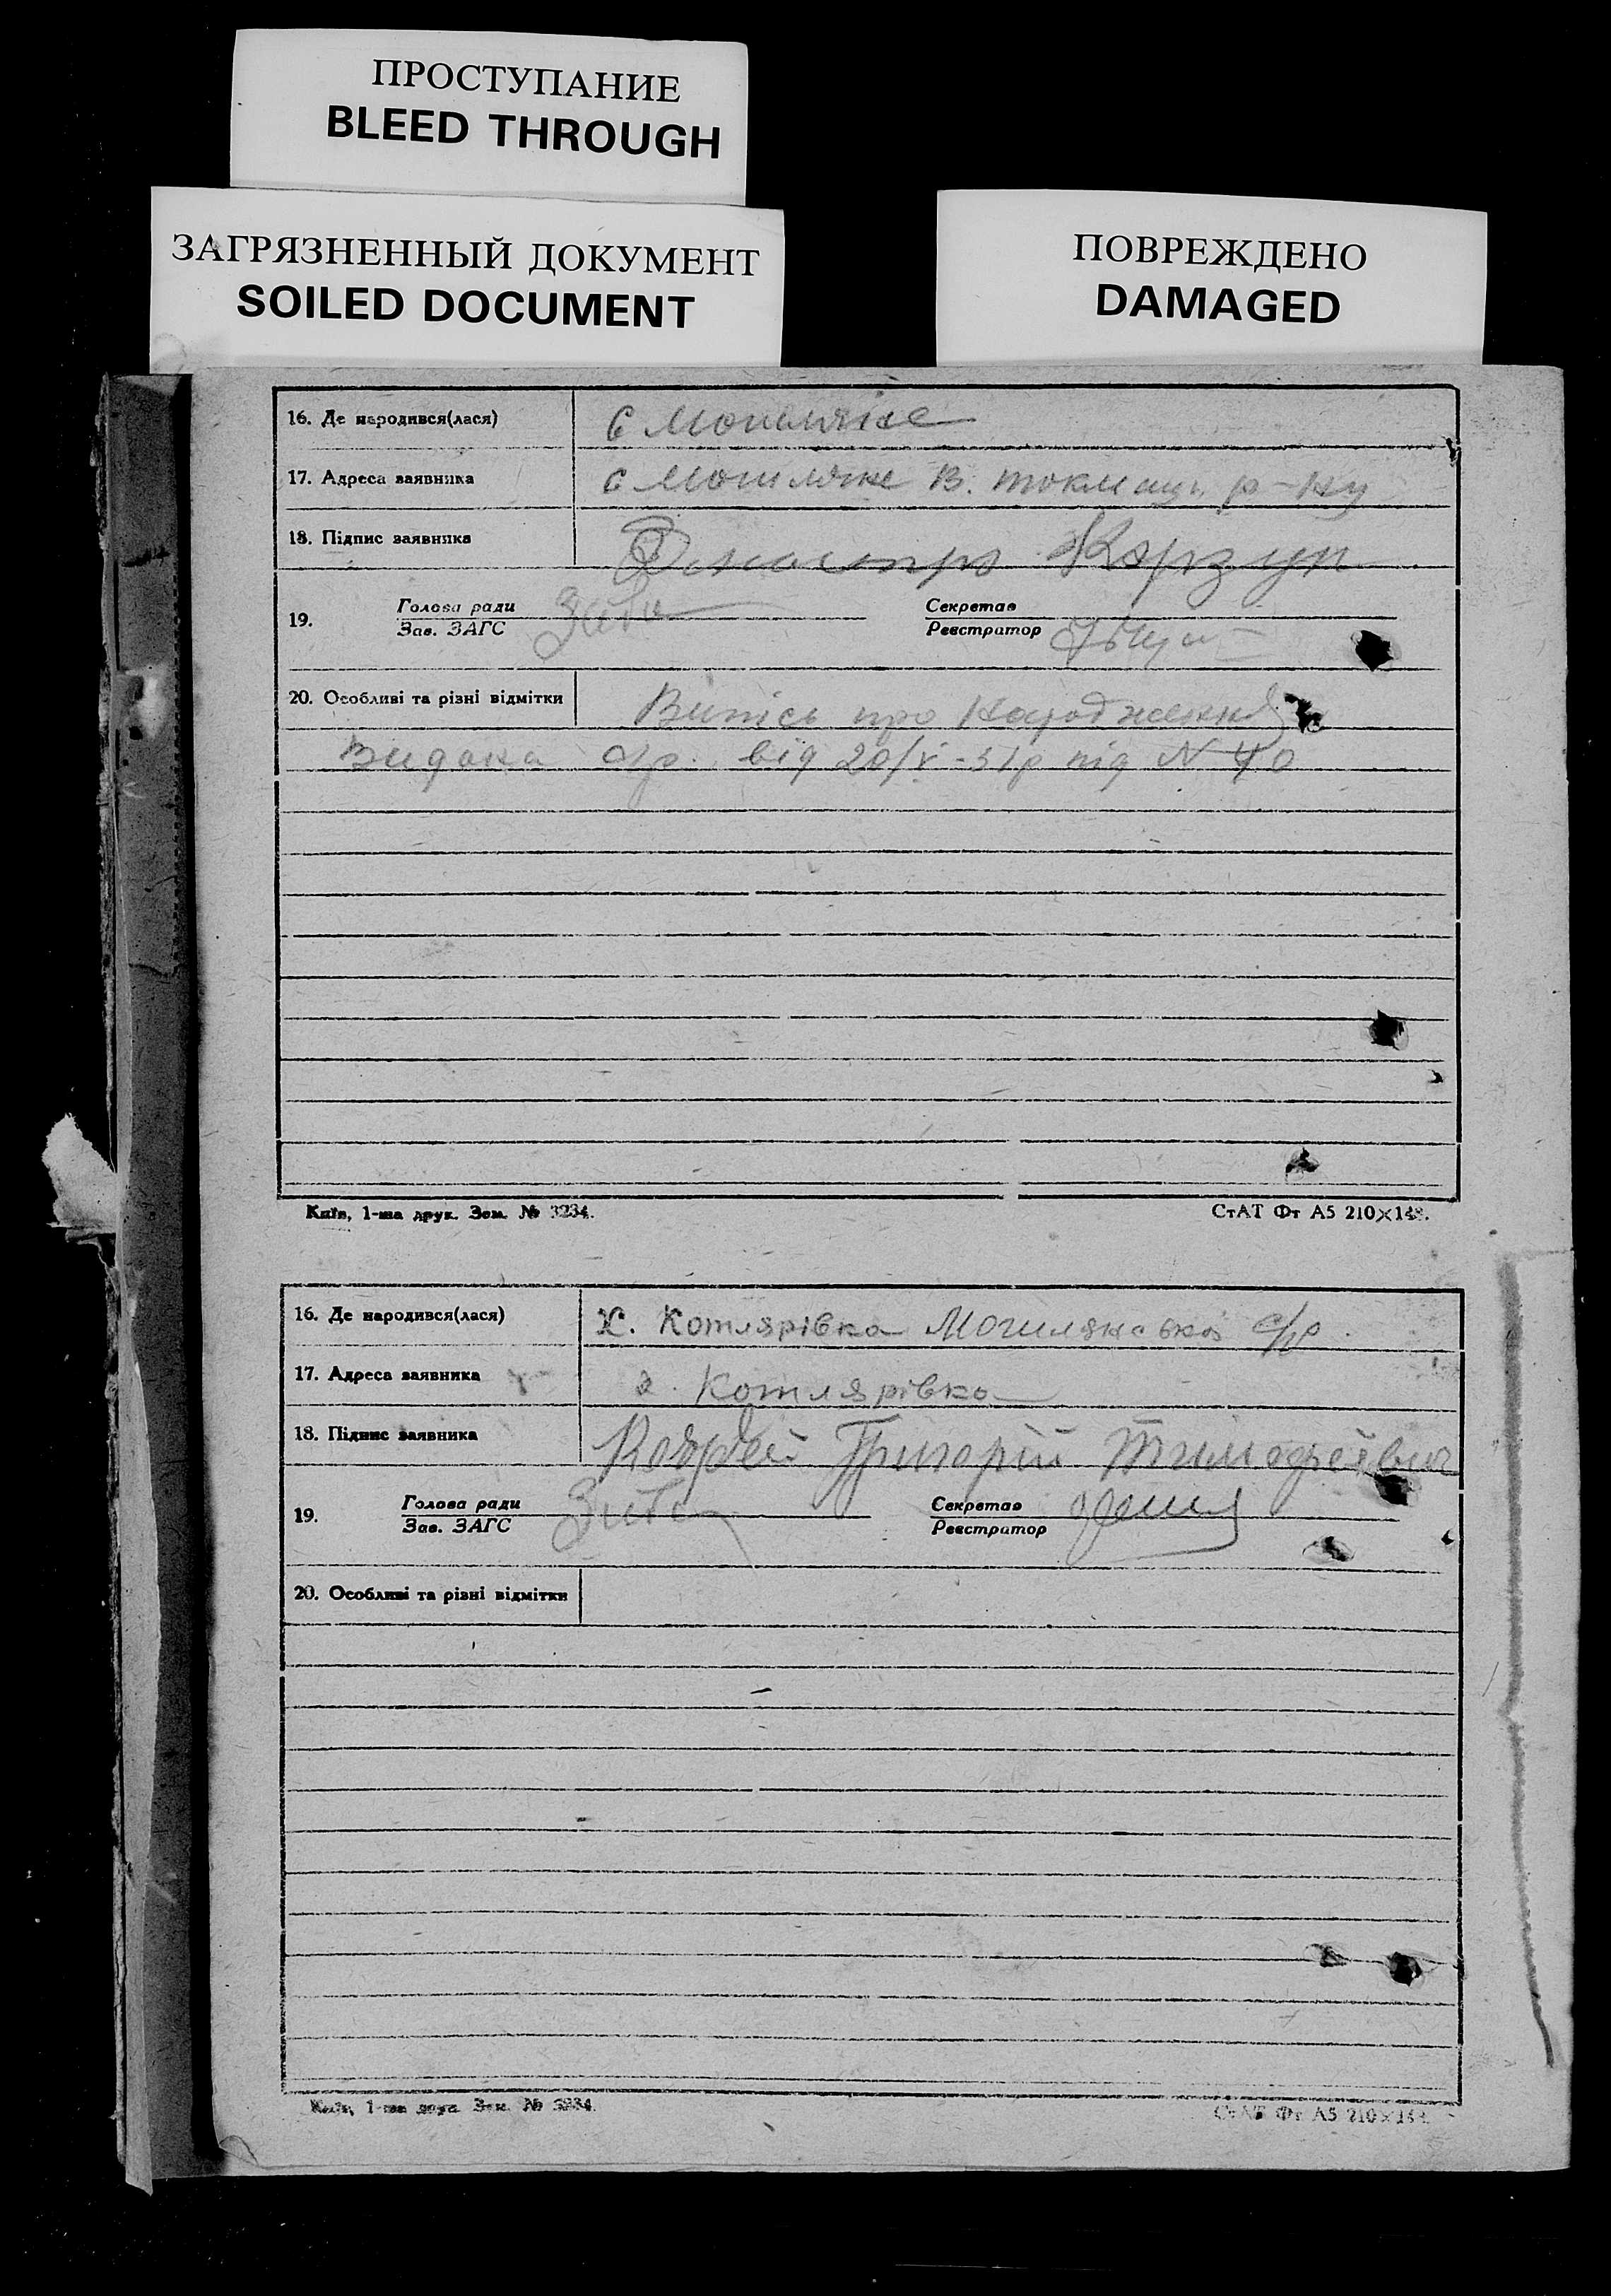 ПРОСТУПАНИЕ
BLEED THROUGH
ЗАГРЯЗНЕННЫЙ ДОКУМЕНТ
SOILED DOCUMENT
ПОВРЕЖДЕНО
DAMAGED
16. Де народився(лася) с Могиляне
17. Адреса заявника с Могиляне В. токмац. р-ну
18. Підпис заявника Корзун
19. Голова ради Секретар
Зав. ЗАГС Реєстратор
20. Особливі та різні відмітки Випісь про Народження
Видана с/р. від 20/V-31р під N 40
Київ, 1-ша друк. Зам. № 3234. СтАТ Фт А5 210×148.
16. Де народився(лася) х. Котлярівка Могилянської с/р.
17. Адреса заявника х. Котлярівка
18. Підпис заявника Григорій Тимофеєвич
19. Голова ради Секретар
Зав. ЗАГС Реєстратор
20. Особливі та різні відмітки
Київ, 1-ша друк. Зам. № 3234. СтАТ Фт А5 210×148.